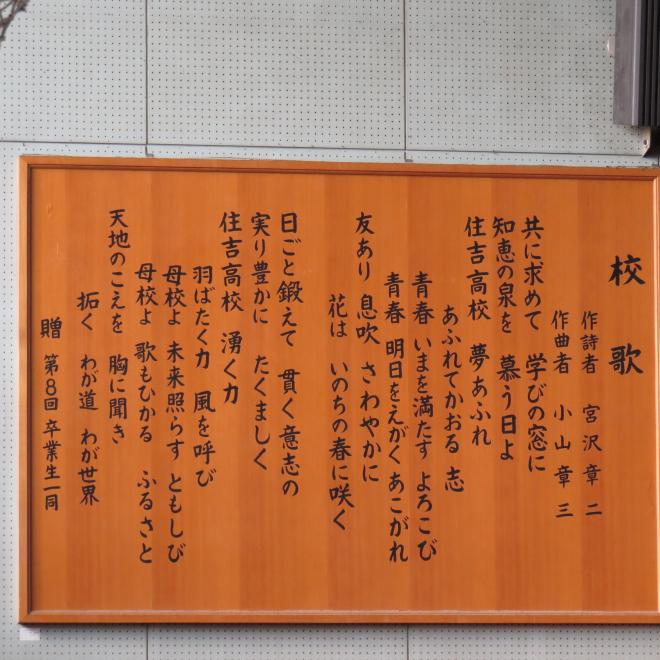 校歌
作詩者 宮沢章二
作曲者 小山章三
共に求めて 学びの窓に
知恵の泉を 慕う日よ
住吉高校 夢あふれ
あふれてかおる 志
青春 いまを満たす よろこび
青春 明日をえがく あこがれ
友あり 息吹 さわやかに
花は いのちの春に咲く
日ごと鍛えて 貫く意志の
実り豊かに たくましく
住吉高校 湧く力
羽ばたく力 風を呼び
母校よ 未来照らす ともしび
母校よ 歌もひかる ふるさと
天地のこえを 胸に聞き
拓く わが道 わが世界
贈 第8回 卒業生一同